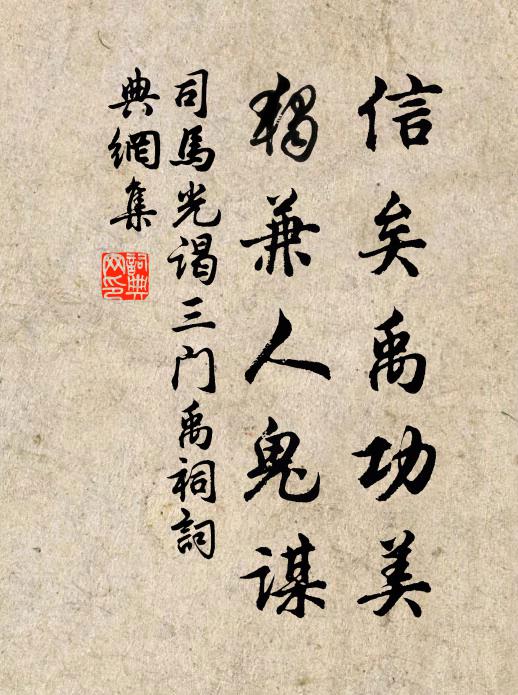 信矣禹功美
独兼人鬼謀
司馬光謁三门禹祠詞
典網集
詞典网印